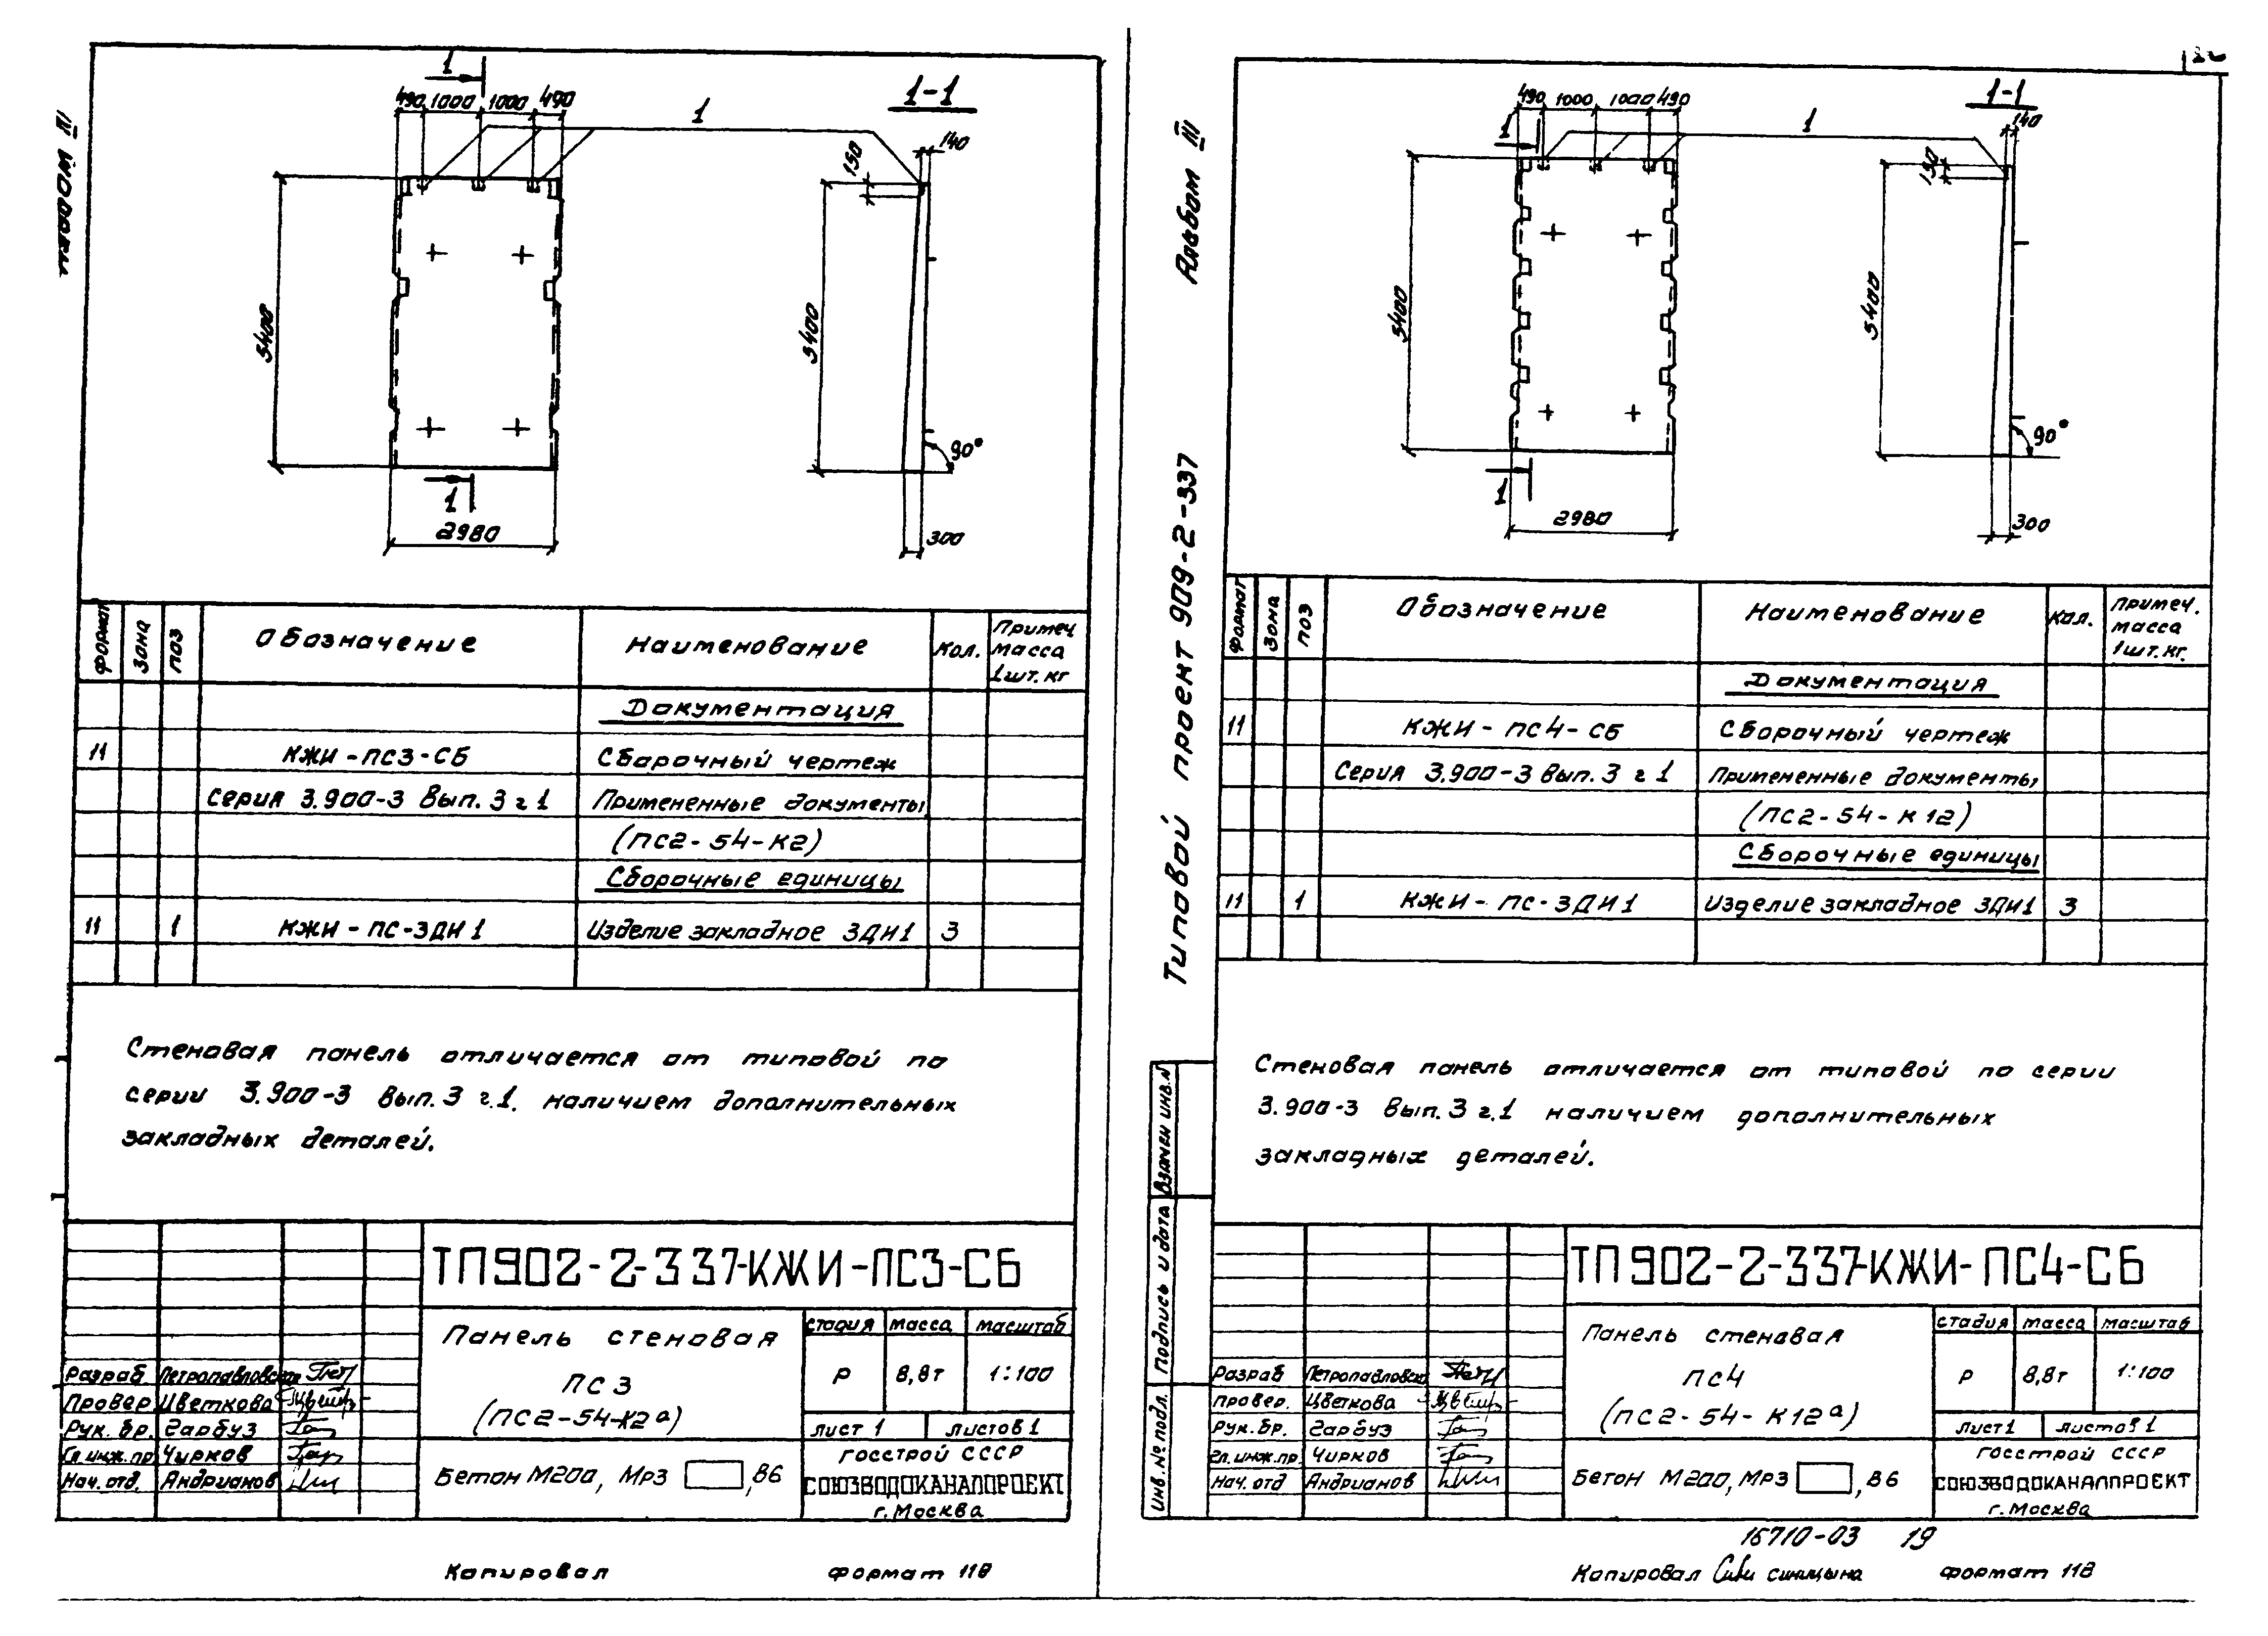 Альбом III
1
490 1000 1000 490
1
1-1
140
150
5400
5400
90°
1
2980
300
Формат Зона Поз Обозначение Наименование Кол. Примеч масса 1 шт. кг
Документация
11 КЖИ-ПС3-СБ Сборочный чертеж
Серия 3.900-3 Вып. 3 ч 1 Примененные документы
(ПС2-54-К2)
Сборочные единицы
11 1 КЖИ-ПС-ЗДИ1 Изделие закладное ЗДИ1 3
Стеновая панель отличается от типовой по
серии 3.900-3 Вып. 3 ч.1. наличием дополнительных
закладных деталей.
ТП902-2-337-КЖИ-ПС3-СБ
Панель стеновая
ПС3
(ПС2-54-К2а)
Стадия Масса Масштаб
Р 8,8т 1:100
Лист 1 Листов 1
Разраб Петропавловская
Провер Цветкова
Рук. бр. Гарбуз
Гл. инж. пр Чирков
Нач. отд. Андрианов
Бетон М200, Мрз ,В6
Госстрой СССР
СОЮЗВОДОКАНАЛПРОЕКТ
г. Москва
Копировал Формат 11В
Типовой проект 909-2-337 Альбом III
Взамен инв.№
Подпись и дата
Инв. № подл.
490 1000 1000 490
1
1
1-1
140
150
5400
5400
90°
1
2980
300
Формат Зона Поз Обозначение Наименование Кол. Примеч. масса 1 шт. кг.
Документация
11 КЖИ-ПС4-СБ Сборочный чертеж
Серия 3.900-3 Вып. 3 ч 1 Примененные документы
(ПС2-54-К12)
Сборочные единицы
11 1 КЖИ-ПС-ЗДИ1 Изделие закладное ЗДИ1 3
Стеновая панель отличается от типовой по серии
3.900-3 Вып. 3 ч.1 наличием дополнительных
закладных деталей.
ТП902-2-337-КЖИ-ПС4-СБ
Панель стеновая
ПС4
(ПС2-54-К12а)
Стадия Масса Масштаб
Р 8,8т 1:100
Лист 1 Листов 1
Разраб Петропавловска
Провер. Цветкова
Рук. бр. Гарбуз
Гл. инж. пр Чирков
Нач. отд Андрианов
Бетон М200, Мрз ,В6
Госстрой СССР
СОЮЗВОДОКАНАЛПРОЕКТ
г. Москва
16710-03 19
Копировал Синицына Формат 11В